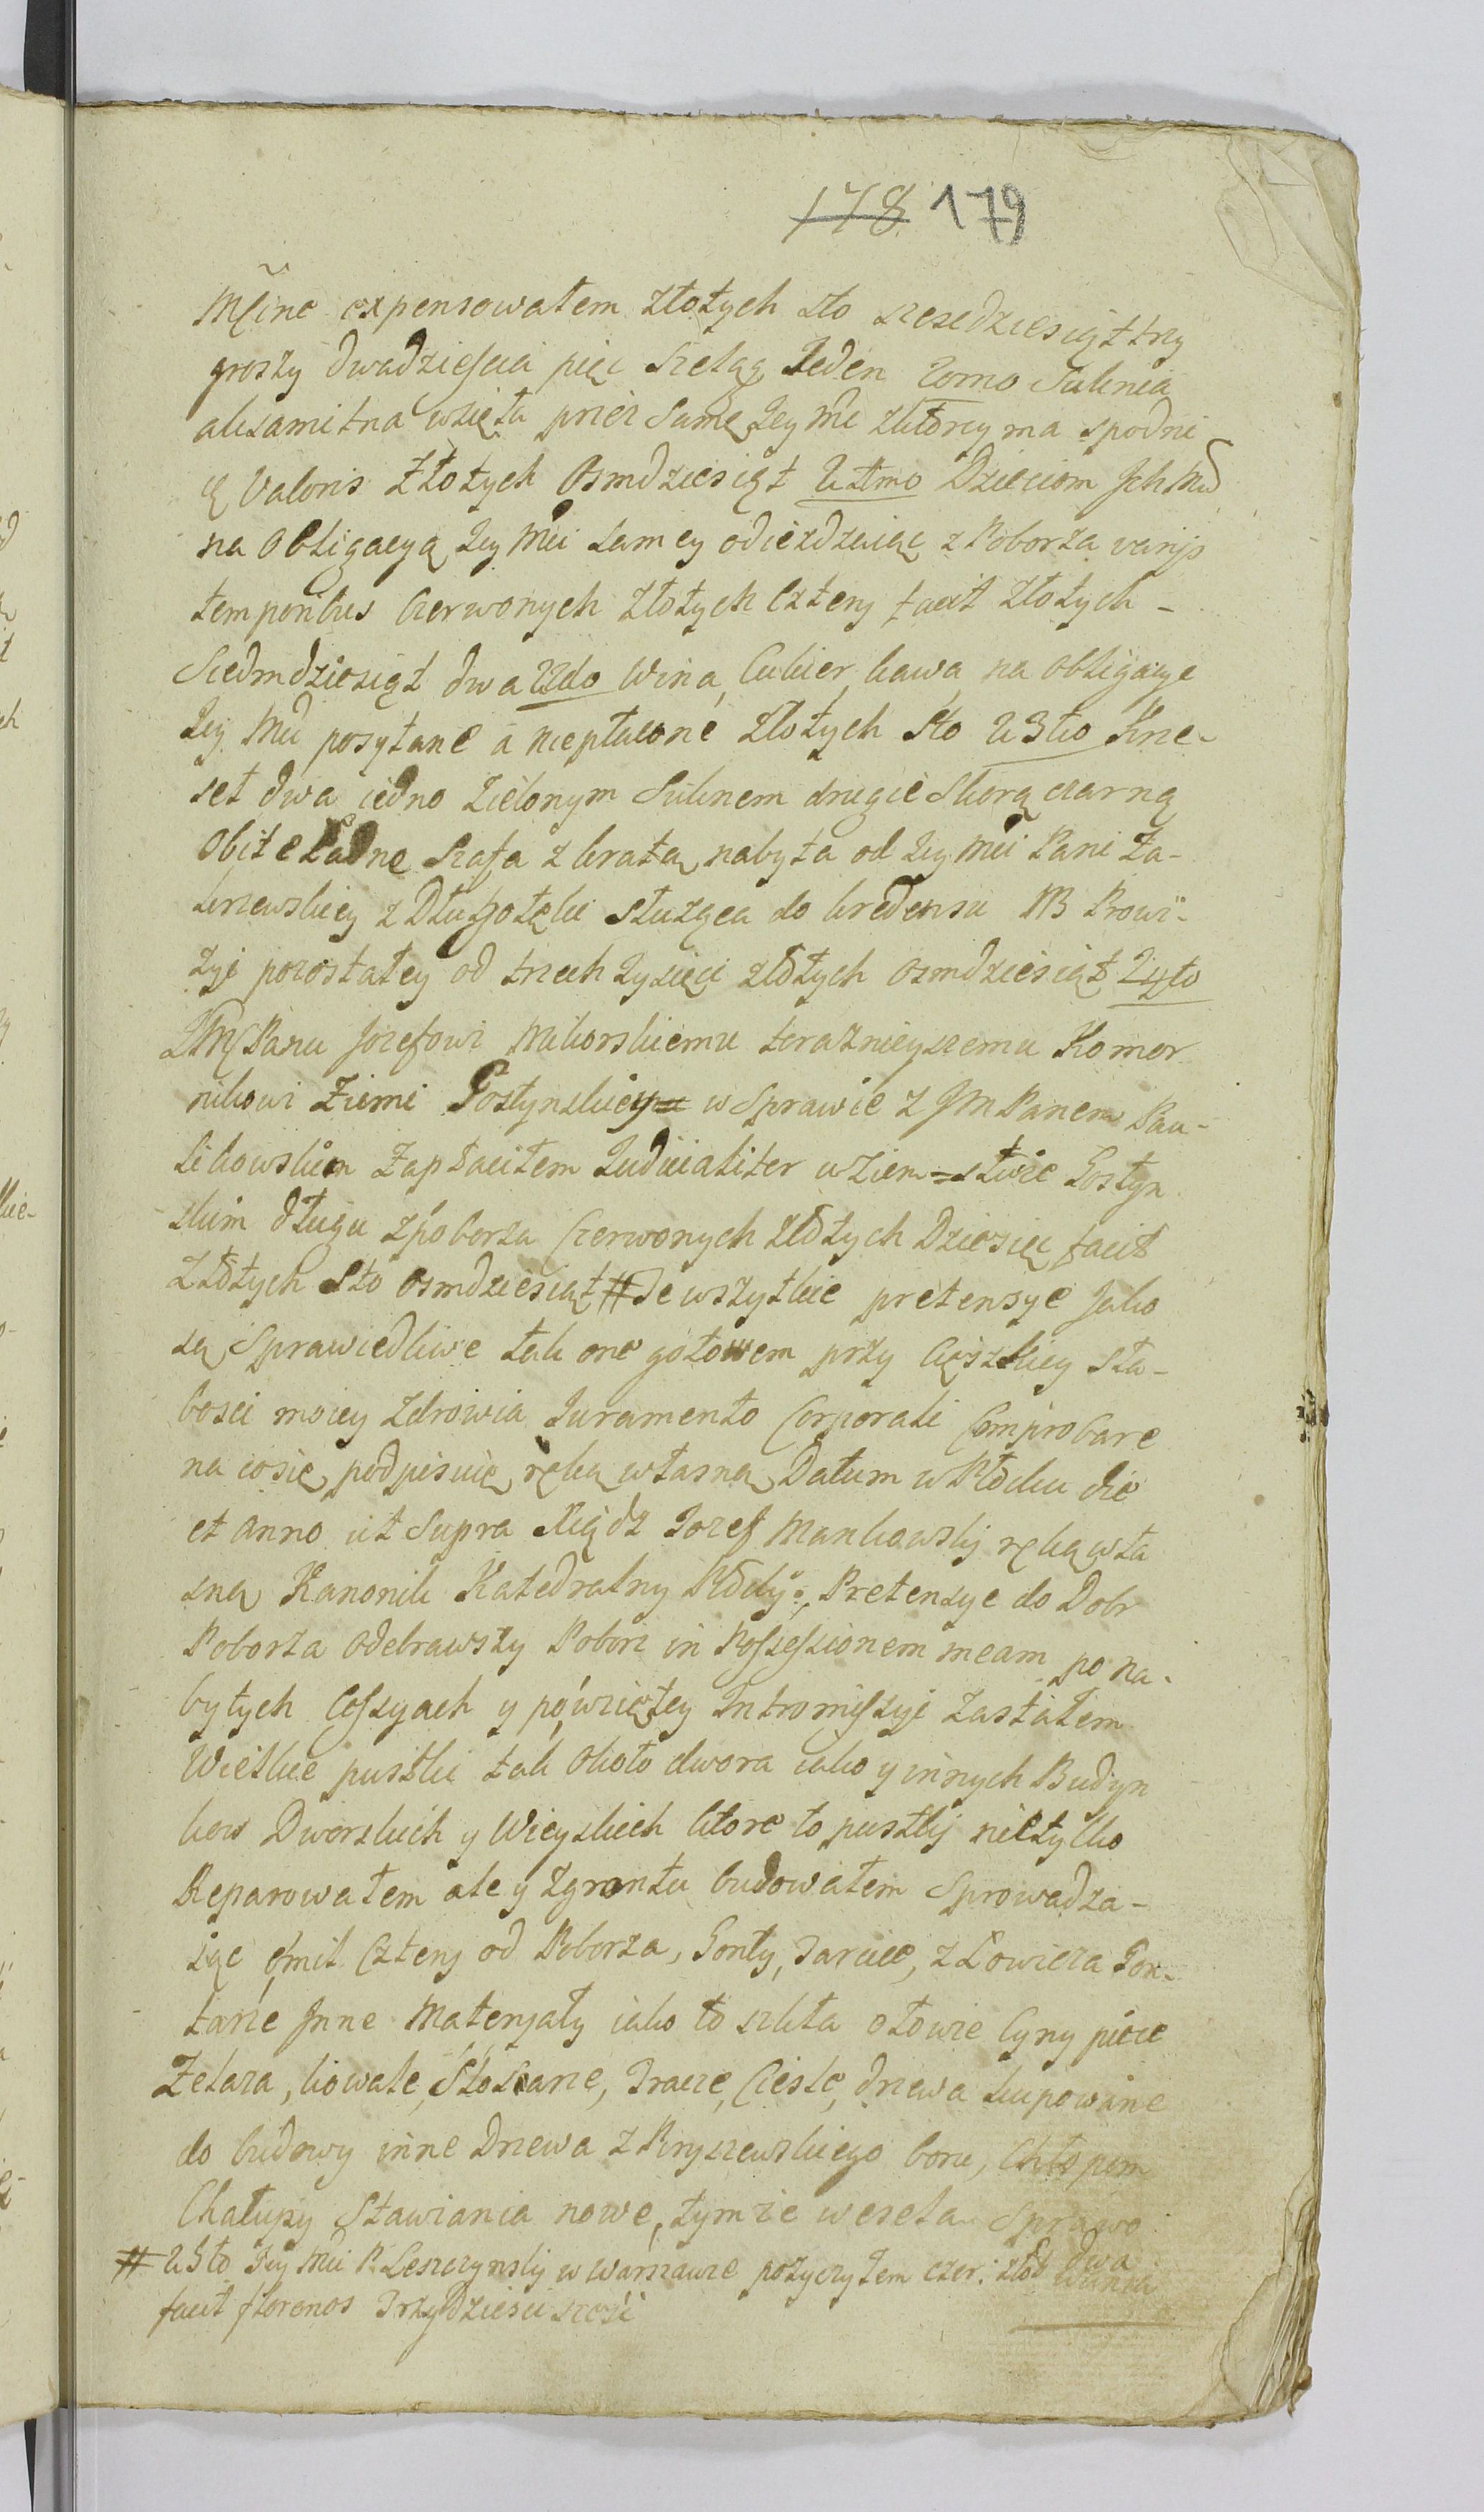 178 179
Mĉine expensowałem złotych sto szescdziesiąt trzy
groszy dwadziescia pięc szeląg Jeden 20mo Suknia
aksamitna wzięta przez Samę Jey Mć z ktorey ma spodni
cę Valoris złotych Osmdziesiąt 21mo Dzieciom Ich Mć
na Obligacyą Jey Mći samey odieżdzaiąc z Poborza varijs
temporibus Czerwonych złotych Cztery facit złotych -
Siedmdziesiąt dwa 22do Wina, Cukier, kawa, na obligacye
Jey Mći posyłane a niepłacone złotych sto 23tio Krze-
seł dwa iedno zielonym Suknem drugie Skorą czarną
Obite Ładne Szafa z kratą nabyta od Jey Mći Pani Za-
krzewskiey z Długołęki służąca do kredensu NB Prowi-
zyi pozostałey od trzech tysięcy złotych osmdziesiąt 24to
JM Panu Jozefowi Mikorskiemu teraznieyszemu Komor
nikowi Ziemi Gostynskiey w Sprawie z JM Panem Pau-
likowskim Zapłaciłem Judicialiter w Ziem=stwie Gostyn
skim długu z poborza Czerwonych złotych Dziesięc facit
złotych sto osmdziesiąt # Te wszytkie pretensye Jako
są Sprawiedliwe tak one gotowem przy Cięszkiey sła-
bosci moiey zdrowia Juramento Corporali Comprobare
na co się podpisuię ręką własną Datum w Płocku die
et anno ut Supra Xiądz Jozef Mankowsky ręką wła
sną Kanonik Katedralny Płocky: Pretensye do Dobr
Poborza odebrawszy Poborz in Possessionem meam po na-
bytych Cessyach y po wzietey Intromissyi Zastałem
Wielkie pustki tak około dwora iako y innych Budyn
kow Dworskich y Wieyskich ktore to pustky nietylko
Reparowałem ale y z gruntu budowałem Sprowadza-
iąc o mil Cztery od Poborza, Gonty, Tarcice, z Łowicza Gon-
tarze Inne Materyały iako to szkła ołowie Cyny piece
Żelaza, kowale, Słosarze, Tracze, Cieśle, drzewa kupowane
do budowy inne Drzewa z Kryszewskiego boru, Chłopom
Chałupy Stawiania nowe, tymże wesela Sprawo
wania
# 25to Jey Mći P. Leszczynsky w Warszawie pozyczyłem czer: złot dwa
facit florenos Trzydziesci szesc